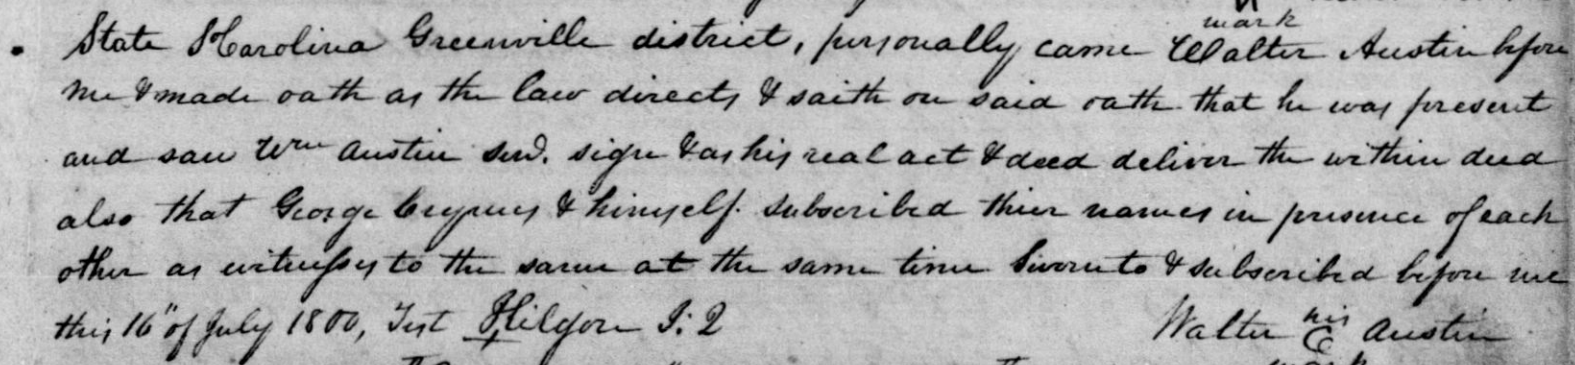 mark
State S Carolina Greenville district, personally came Walter Austin before
me & made oath as the law directs & saith on said oath that he was present
and saw Wm Austin Senr. sign & as his real act & deed deliver the within deed
also that George & himself subscribed thier names in presence of each
other as witnesses to the same at the same time Sworn to & subscribed before me
this 16" of July 1800, Test J: Q
his
Walter Austin